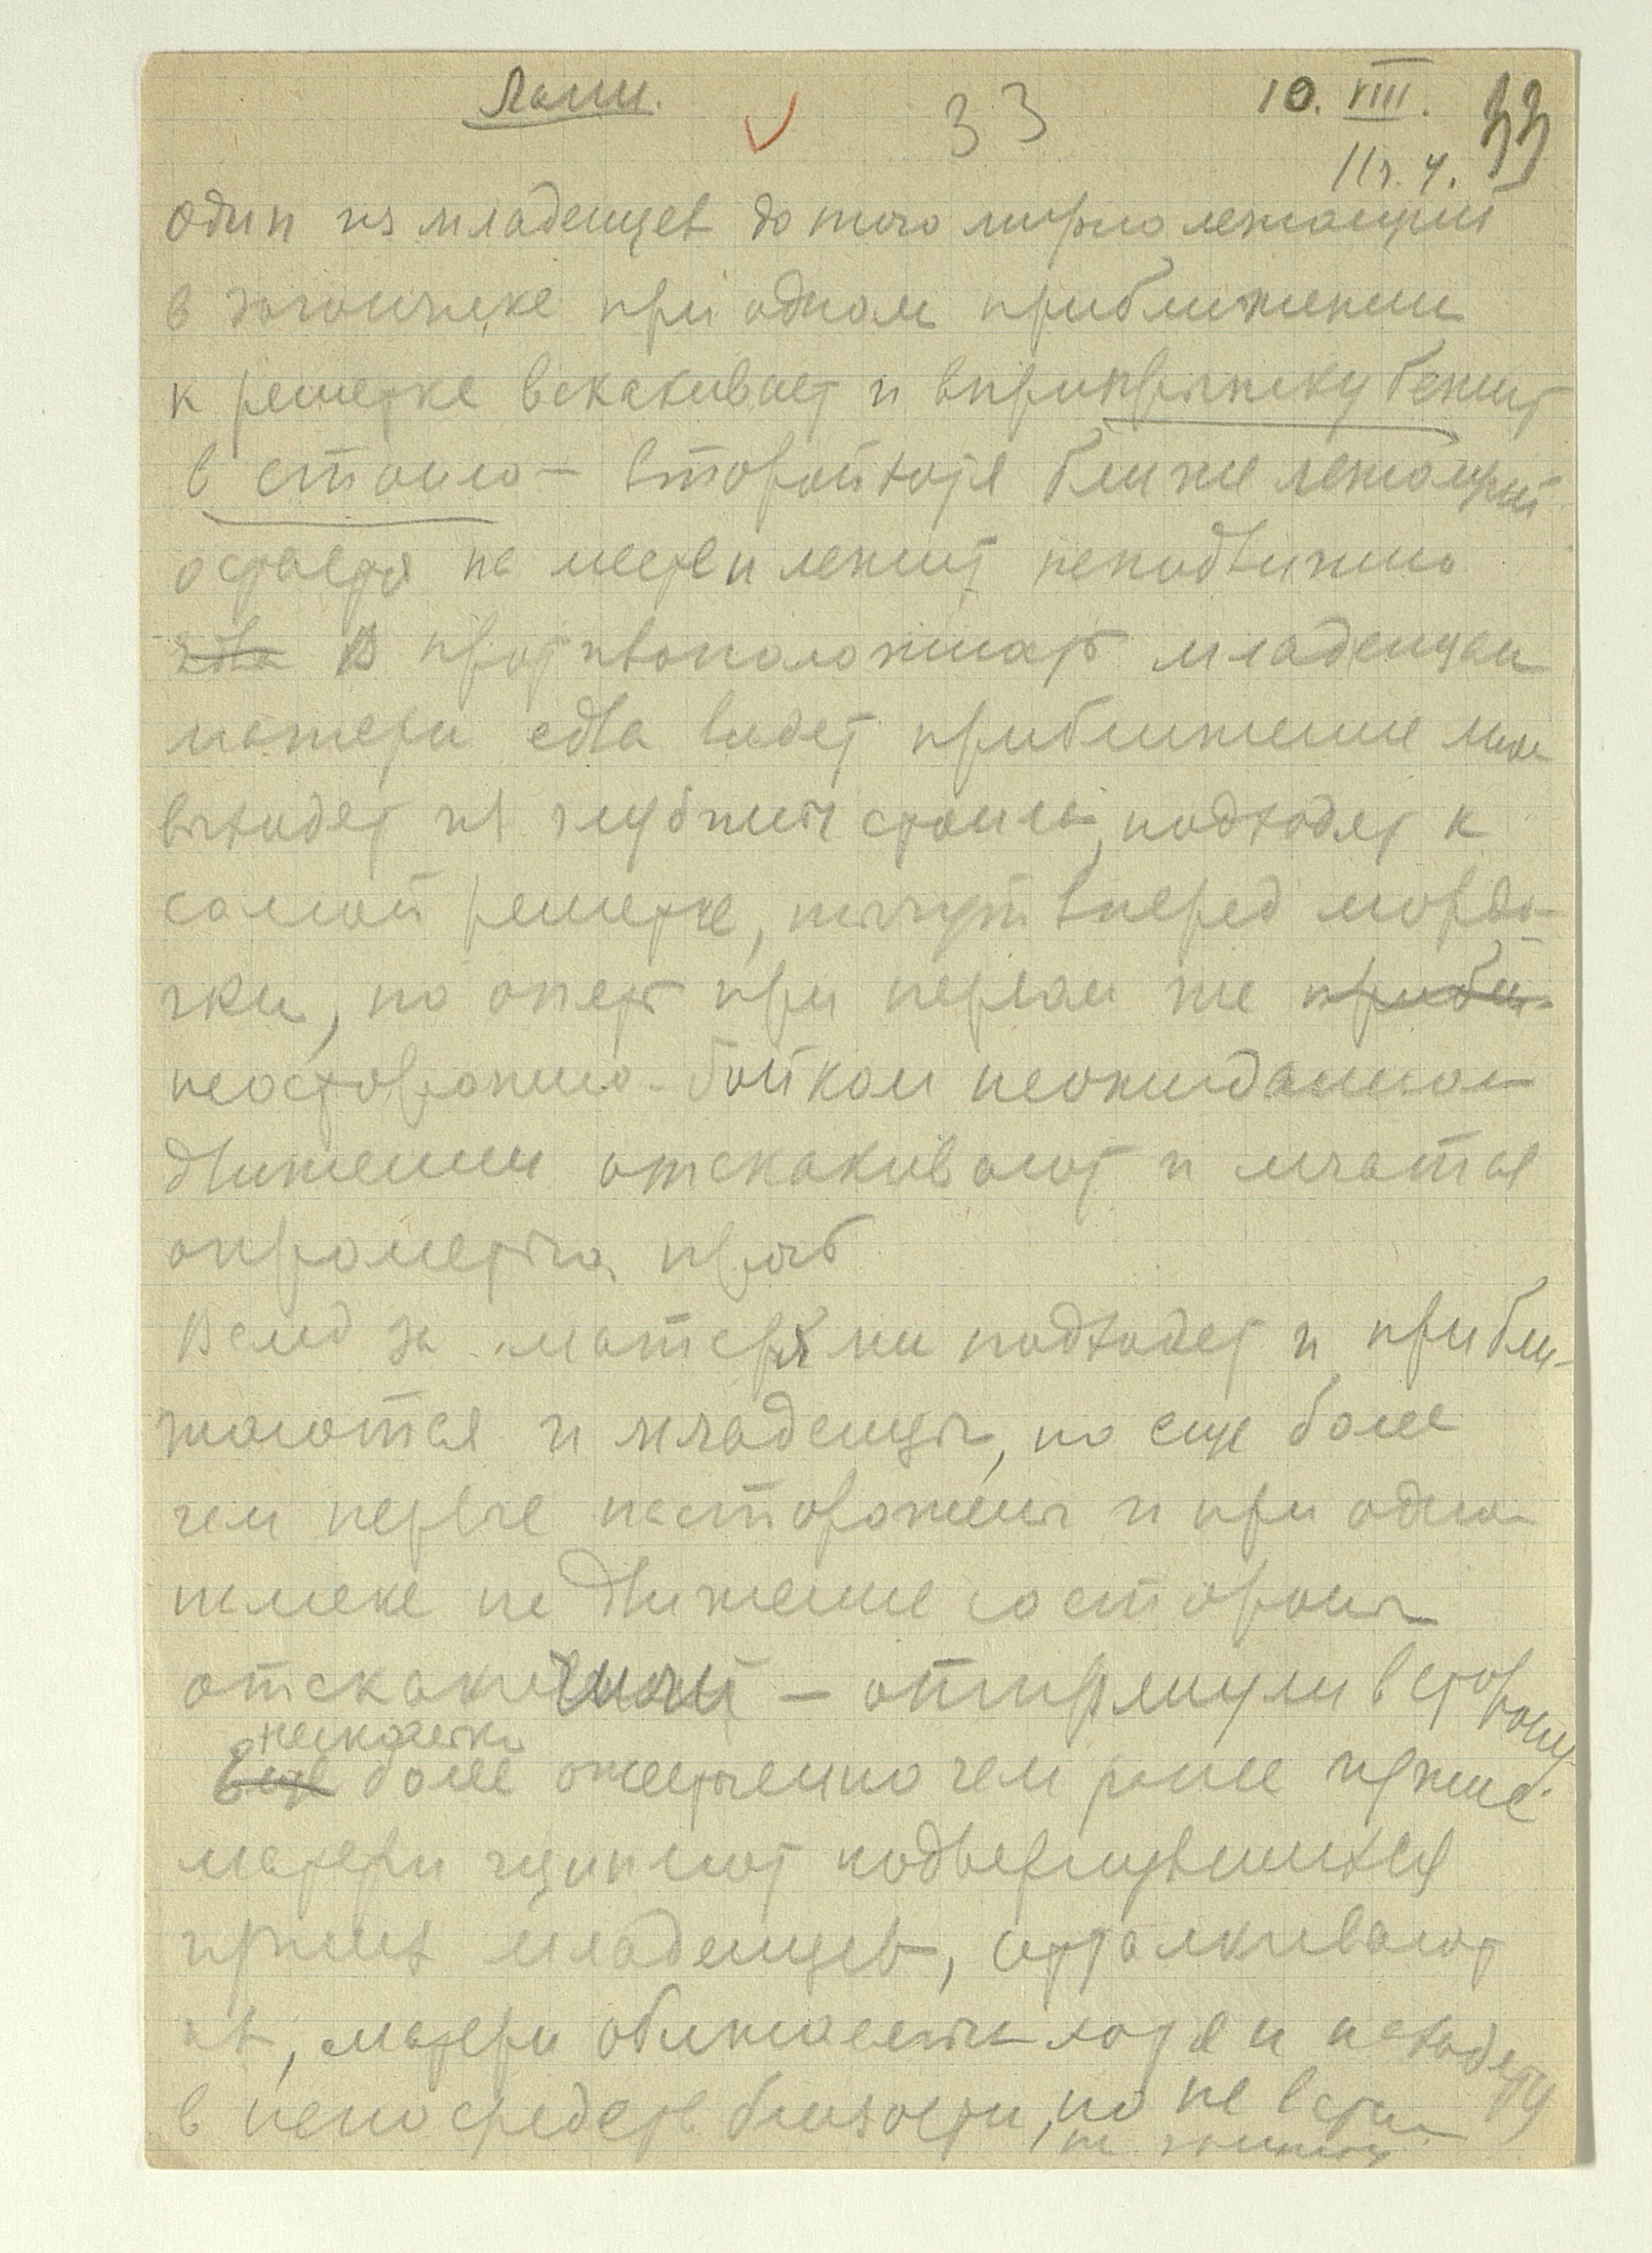 Лани. 33 10. VIII. 33
11 ч. у.
один из младенцев до того мирно лежащий
в загончике при одном приближении
к решетке вскакивает и вприпрыжку бежит
в стойло – второй хотя ближе лежащий
остается на месте и лежит неподвижно
едва В противоположность младенцам
матери едва видет приближение мое
выходет из глубины стойла, подходят к
самой решетке, тычут вперед мордо-
чки, но опять при первом же приближ.
неосторожно-бойком неожиданном
движении отскакивают и мчатся
опрометью прочь
Вслед за матерями подходет и прибли-
жаются и младенцы, но еще более
чем первые насторожены и при одном
намеке на движение со стороны
отскакивают – отпрянули в сторону
несколько
Еще более ожесточенно чем ранее чужие
матери щиплют подвернувшихся
чужих младенцев, отталкивают
их, матери обнюхиваясь хотя и находятся
в непосредств. близости, но не